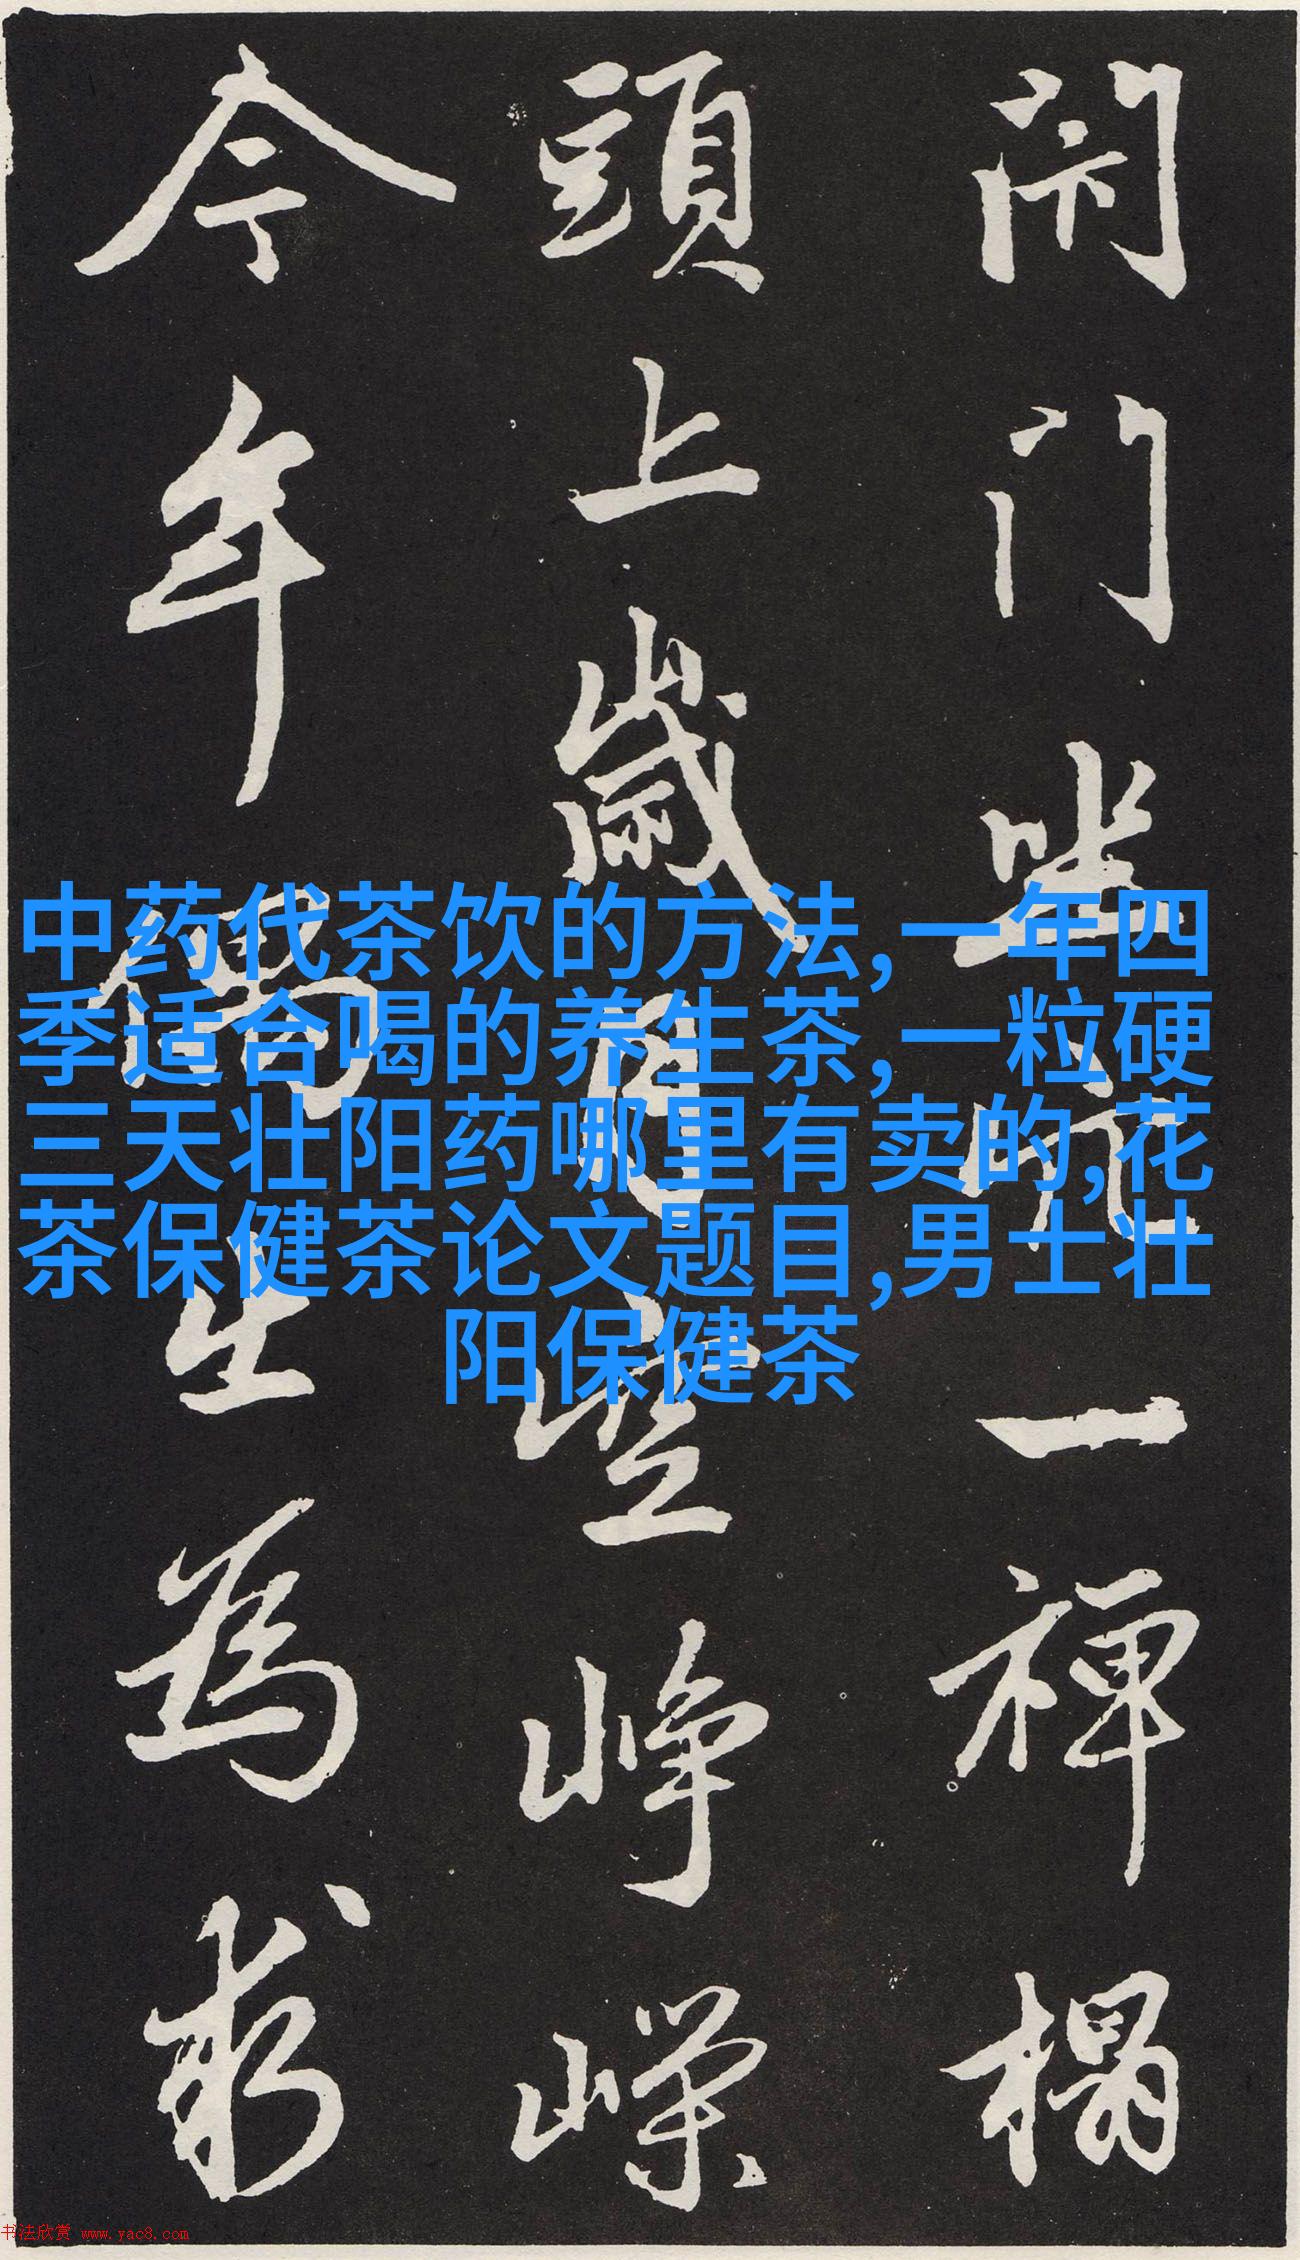 闭门坐穴一禅榻
頭上歲月空峥嵘
今年偶出為求
中药代茶饮的方法,一年四
季适合喝的养生茶,一粒硬
三天壮阳药哪里有卖的,花
茶保健茶论文题目,男士壮
阳保健茶
书法欣赏 www.yac8.com